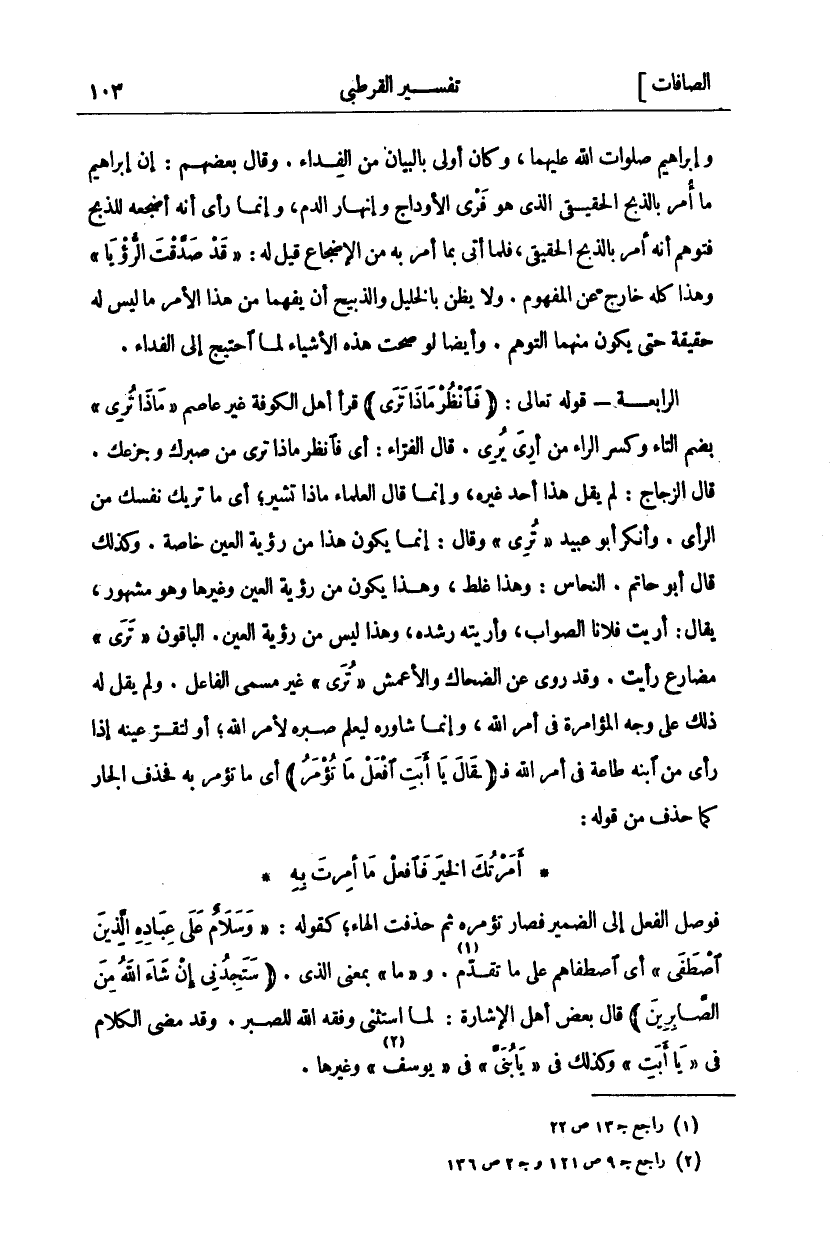 الصافات ] تفسير القرطبى ١٠٣
وإبراهيم صلوات الله عليهما ، وكان أولى بالبيان من الفداء . وقال بعضهم : إن إبراهيم
ما أُمر بالذبح الحقيقى الذى هو فَرْى الأوداج وإنهار الدم، وإنما رأى أنه أضجعه للذبح
فتوهم أنه أمر بالذبح الحقيقى، فلما أتى بما أمر به من الإضجاع قيل له: « قَدْ صَدَّقْتَ الرُّؤْيَا »
وهذا كله خارج عن المفهوم . ولا يظن بالخليل والذبيح أن يفهما من هذا الأمر ما ليس له
حقيقة حتى يكون منهما التوهم . وأيضا لو صحت هذه الأشياء لما ٱحتيج إلى الفداء .
الرابعة — قوله تعالى : ﴿ فَٱنْظُرْ مَاذَا تَرَى ﴾ قرأ أهل الكوفة غير عاصم « مَاذَا تُرِى »
بضم التاء وكسر الراء من أُرِىَ يُرِى . قال الفرّاء : أى فٱنظر ماذا ترى من صبرك وجزعك .
قال الزجاج : لم يقل هذا أحد غيره، وإنما قال العلماء ماذا تشير؛ أى ما تريك نفسك من
الرأى . وأنكر أبو عبيد « تُرِى » وقال : إنما يكون هذا من رؤية العين خاصة . وكذلك
قال أبو حاتم . النحاس : وهذا غلط ، وهذا يكون من رؤية العين وغيرها وهو مشهور ،
يقال: أريت فلانا الصواب، وأريته رشده، وهذا ليس من رؤية العين. الباقون « تَرَى »
مضارع رأيت . وقد روى عن الضحاك والأعمش « تُرَى » غير مسمى الفاعل . ولم يقل له
ذلك على وجه المؤامرة فى أمر الله ، وإنما شاوره ليعلم صبره لأمر الله؛ أو لتقرّ عينه إذا
رأى من ٱبنه طاعة فى أمر الله فـ﴿ـقَالَ يَا أَبَتِ ٱفْعَلْ مَا تُؤْمَرُ ﴾ أى ما تؤمر به فحذف الجار
كما حذف من قوله :
* أَمَرْتُكَ الخَيْرَ فَٱفعلْ مَا أُمِرتَ بِهِ *
فوصل الفعل إلى الضمير فصار تؤمره ثم حذفت الهاء؛ كقوله : « وَسَلَامٌ عَلَى عِبَادِهِ الَّذِينَ
ٱصْطَفَى » أى ٱصطفاهم على ما تقدّم (١) . و « ما » بمعنى الذى . ﴿ سَتَجِدُنِى إِنْ شَاءَ اللهُ مِنَ
الصَّابِرِينَ ﴾ قال بعض أهل الإشارة : لما استثنى وفقه الله للصبر . وقد مضى الكلام
فى « يَا أَبَتِ » وكذلك فى « يَابُنَىَّ » فى « يوسف (٢) » وغيرها .
(١) راجع جـ ١٣ ص ٢٢
(٢) راجع جـ ٩ ص ١٢١ و جـ ٢ ص ١٣٦